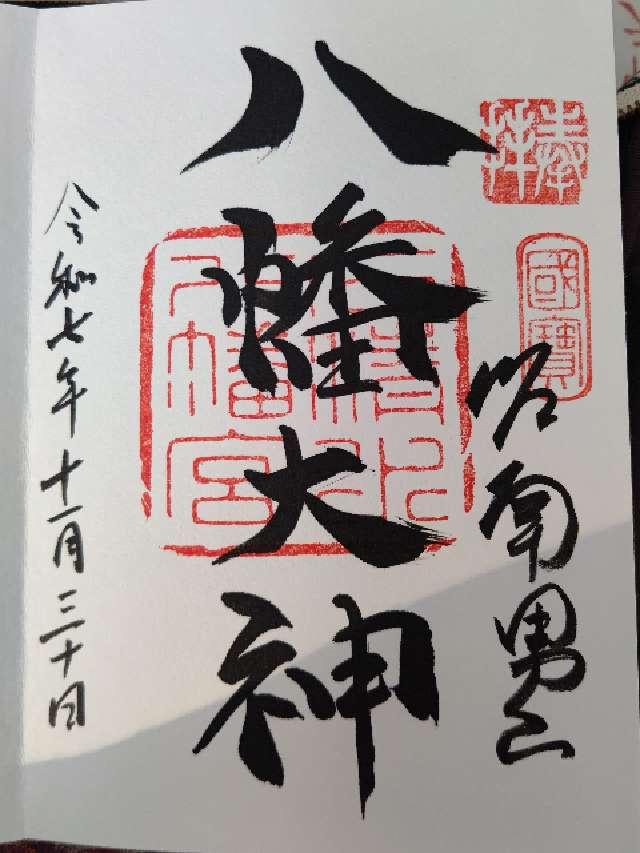 奉拝
國寶
洛南男山
八幡大神
石清水
八幡宮
令和七年十一月三十日